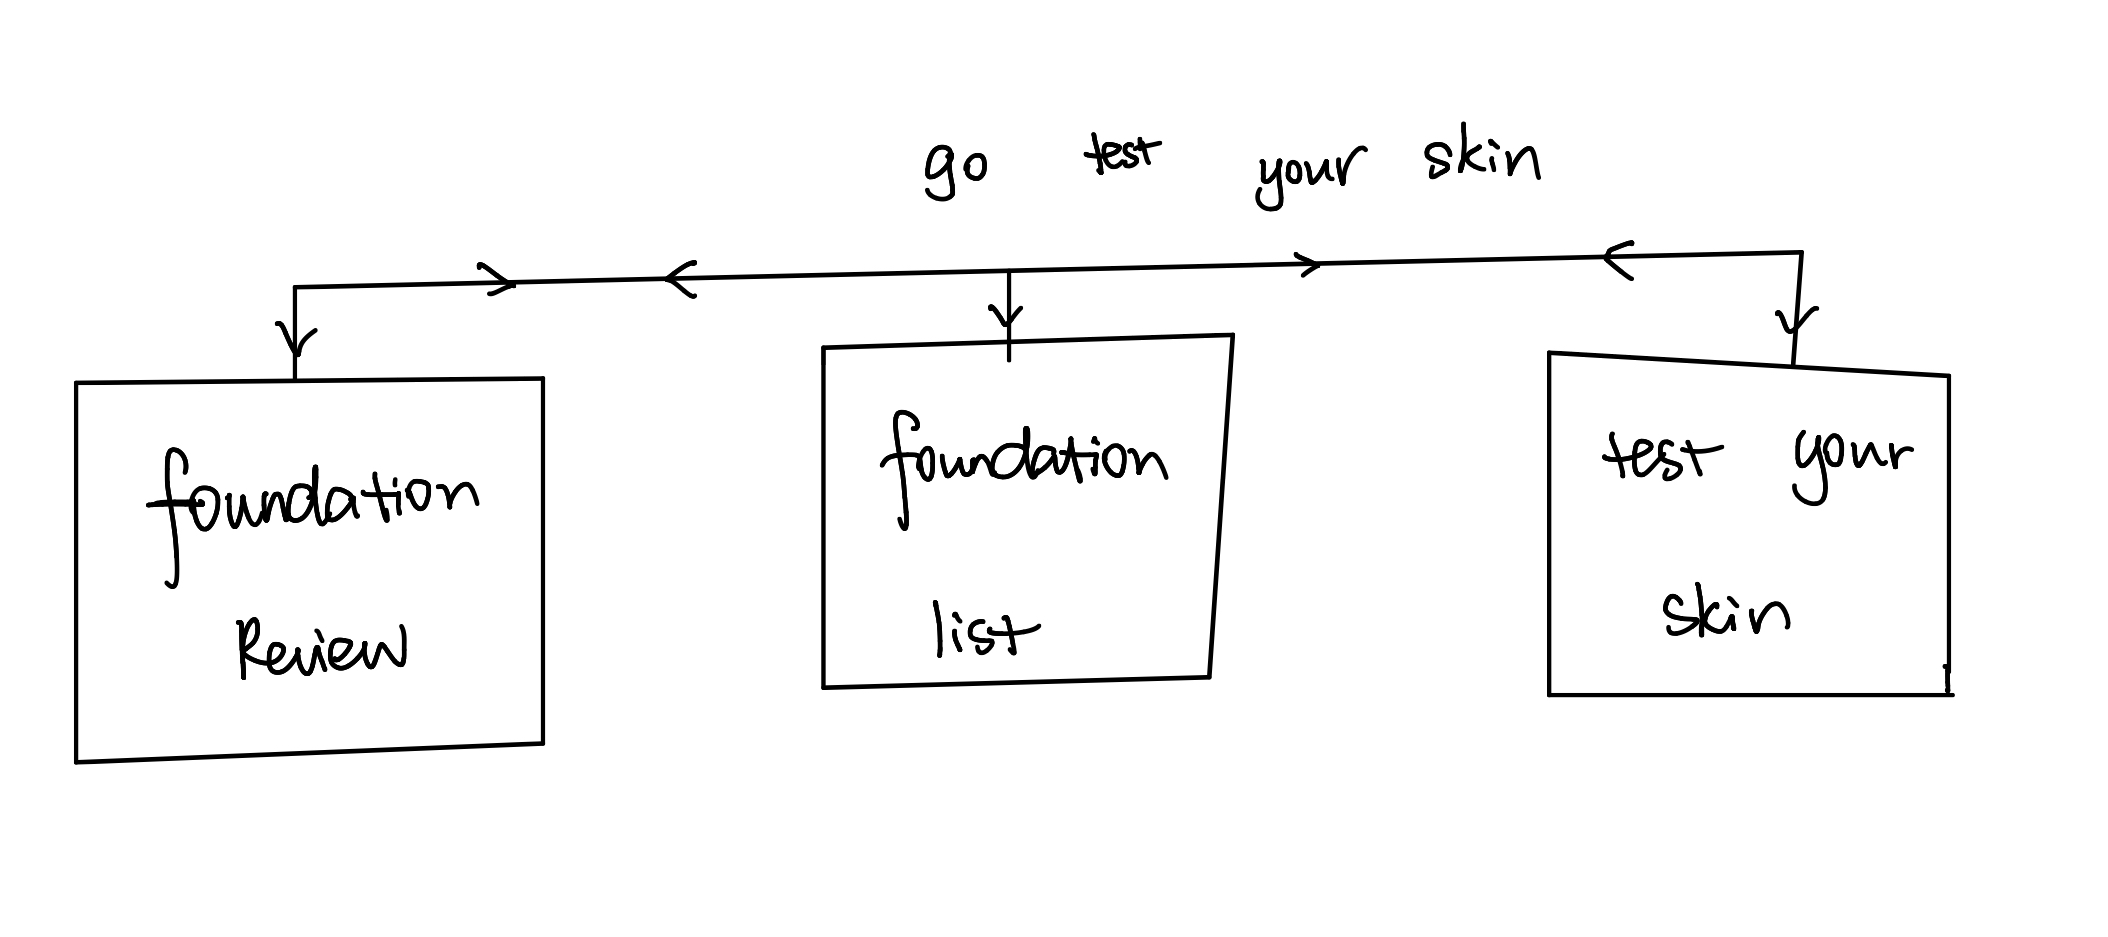 go test your skin
foundation
Review
foundation
list
test your
skin